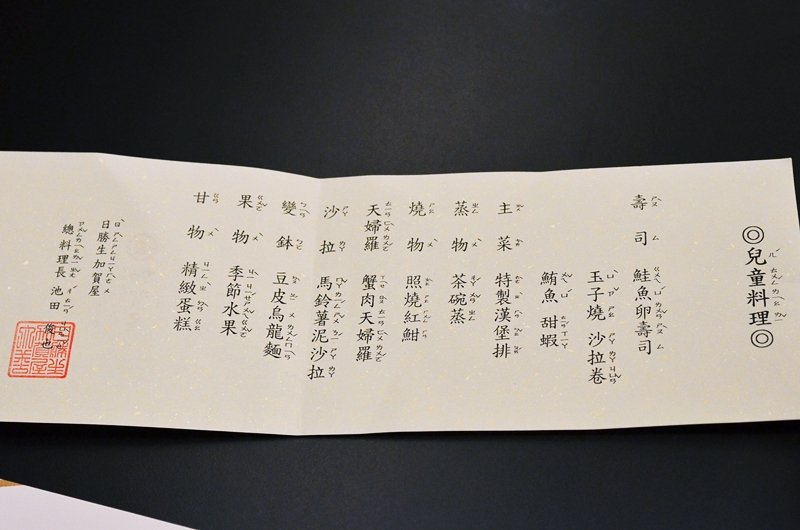 ◎兒童料理◎
壽司 鮭魚卵壽司
玉子燒 沙拉卷
鮪魚 甜蝦
主菜 特製漢堡排
蒸物 茶碗蒸
燒物 照燒紅魽
天婦羅 蟹肉天婦羅
沙拉 馬鈴薯泥沙拉
變鉢 豆皮烏龍麵
果物 季節水果
甘物 精緻蛋糕
日勝生加賀屋
總料理長 池田 俊也